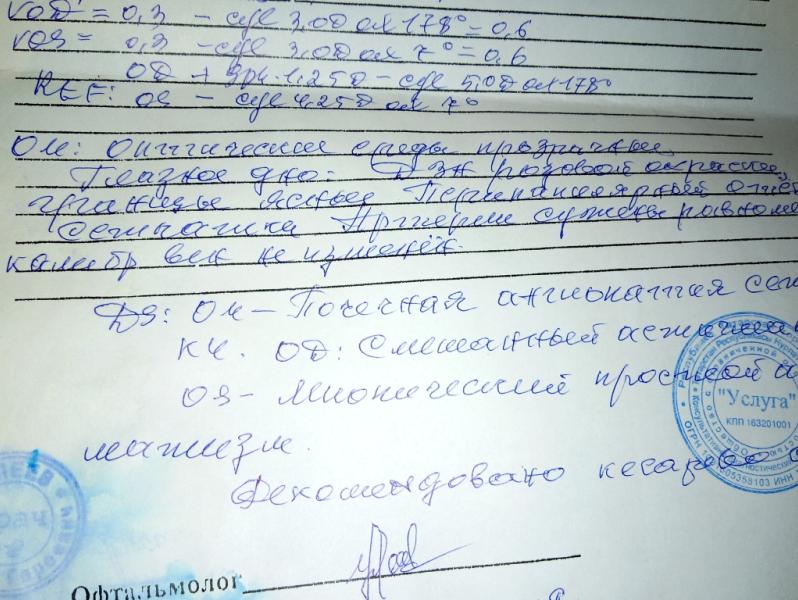 VOD = 0,3 - cyl 3,0D ax 178° = 0,6
VOS = 0,3 - cyl 3,0D ax 7° = 0,6
OD + sph 1,25D - cyl 5,0D ax 178°
REF: OS - cyl 4,25D ax 7°
ОИ: Оптические среды прозрачные
Глазное дно: ДЗН розовой окраски,
границы ясные Перипапиллярный отёк
сетчатки Артерии сужены равноме
калибр вен не изменён.
DS: ОИ - Почечная ангиопатия сет
КЧ. OD: Смешанный астигмати
OS - Миопический простой а
магизм.
Рекомендовано кесарево с
"Услуга"
КПП 163201001
Офтальмолог